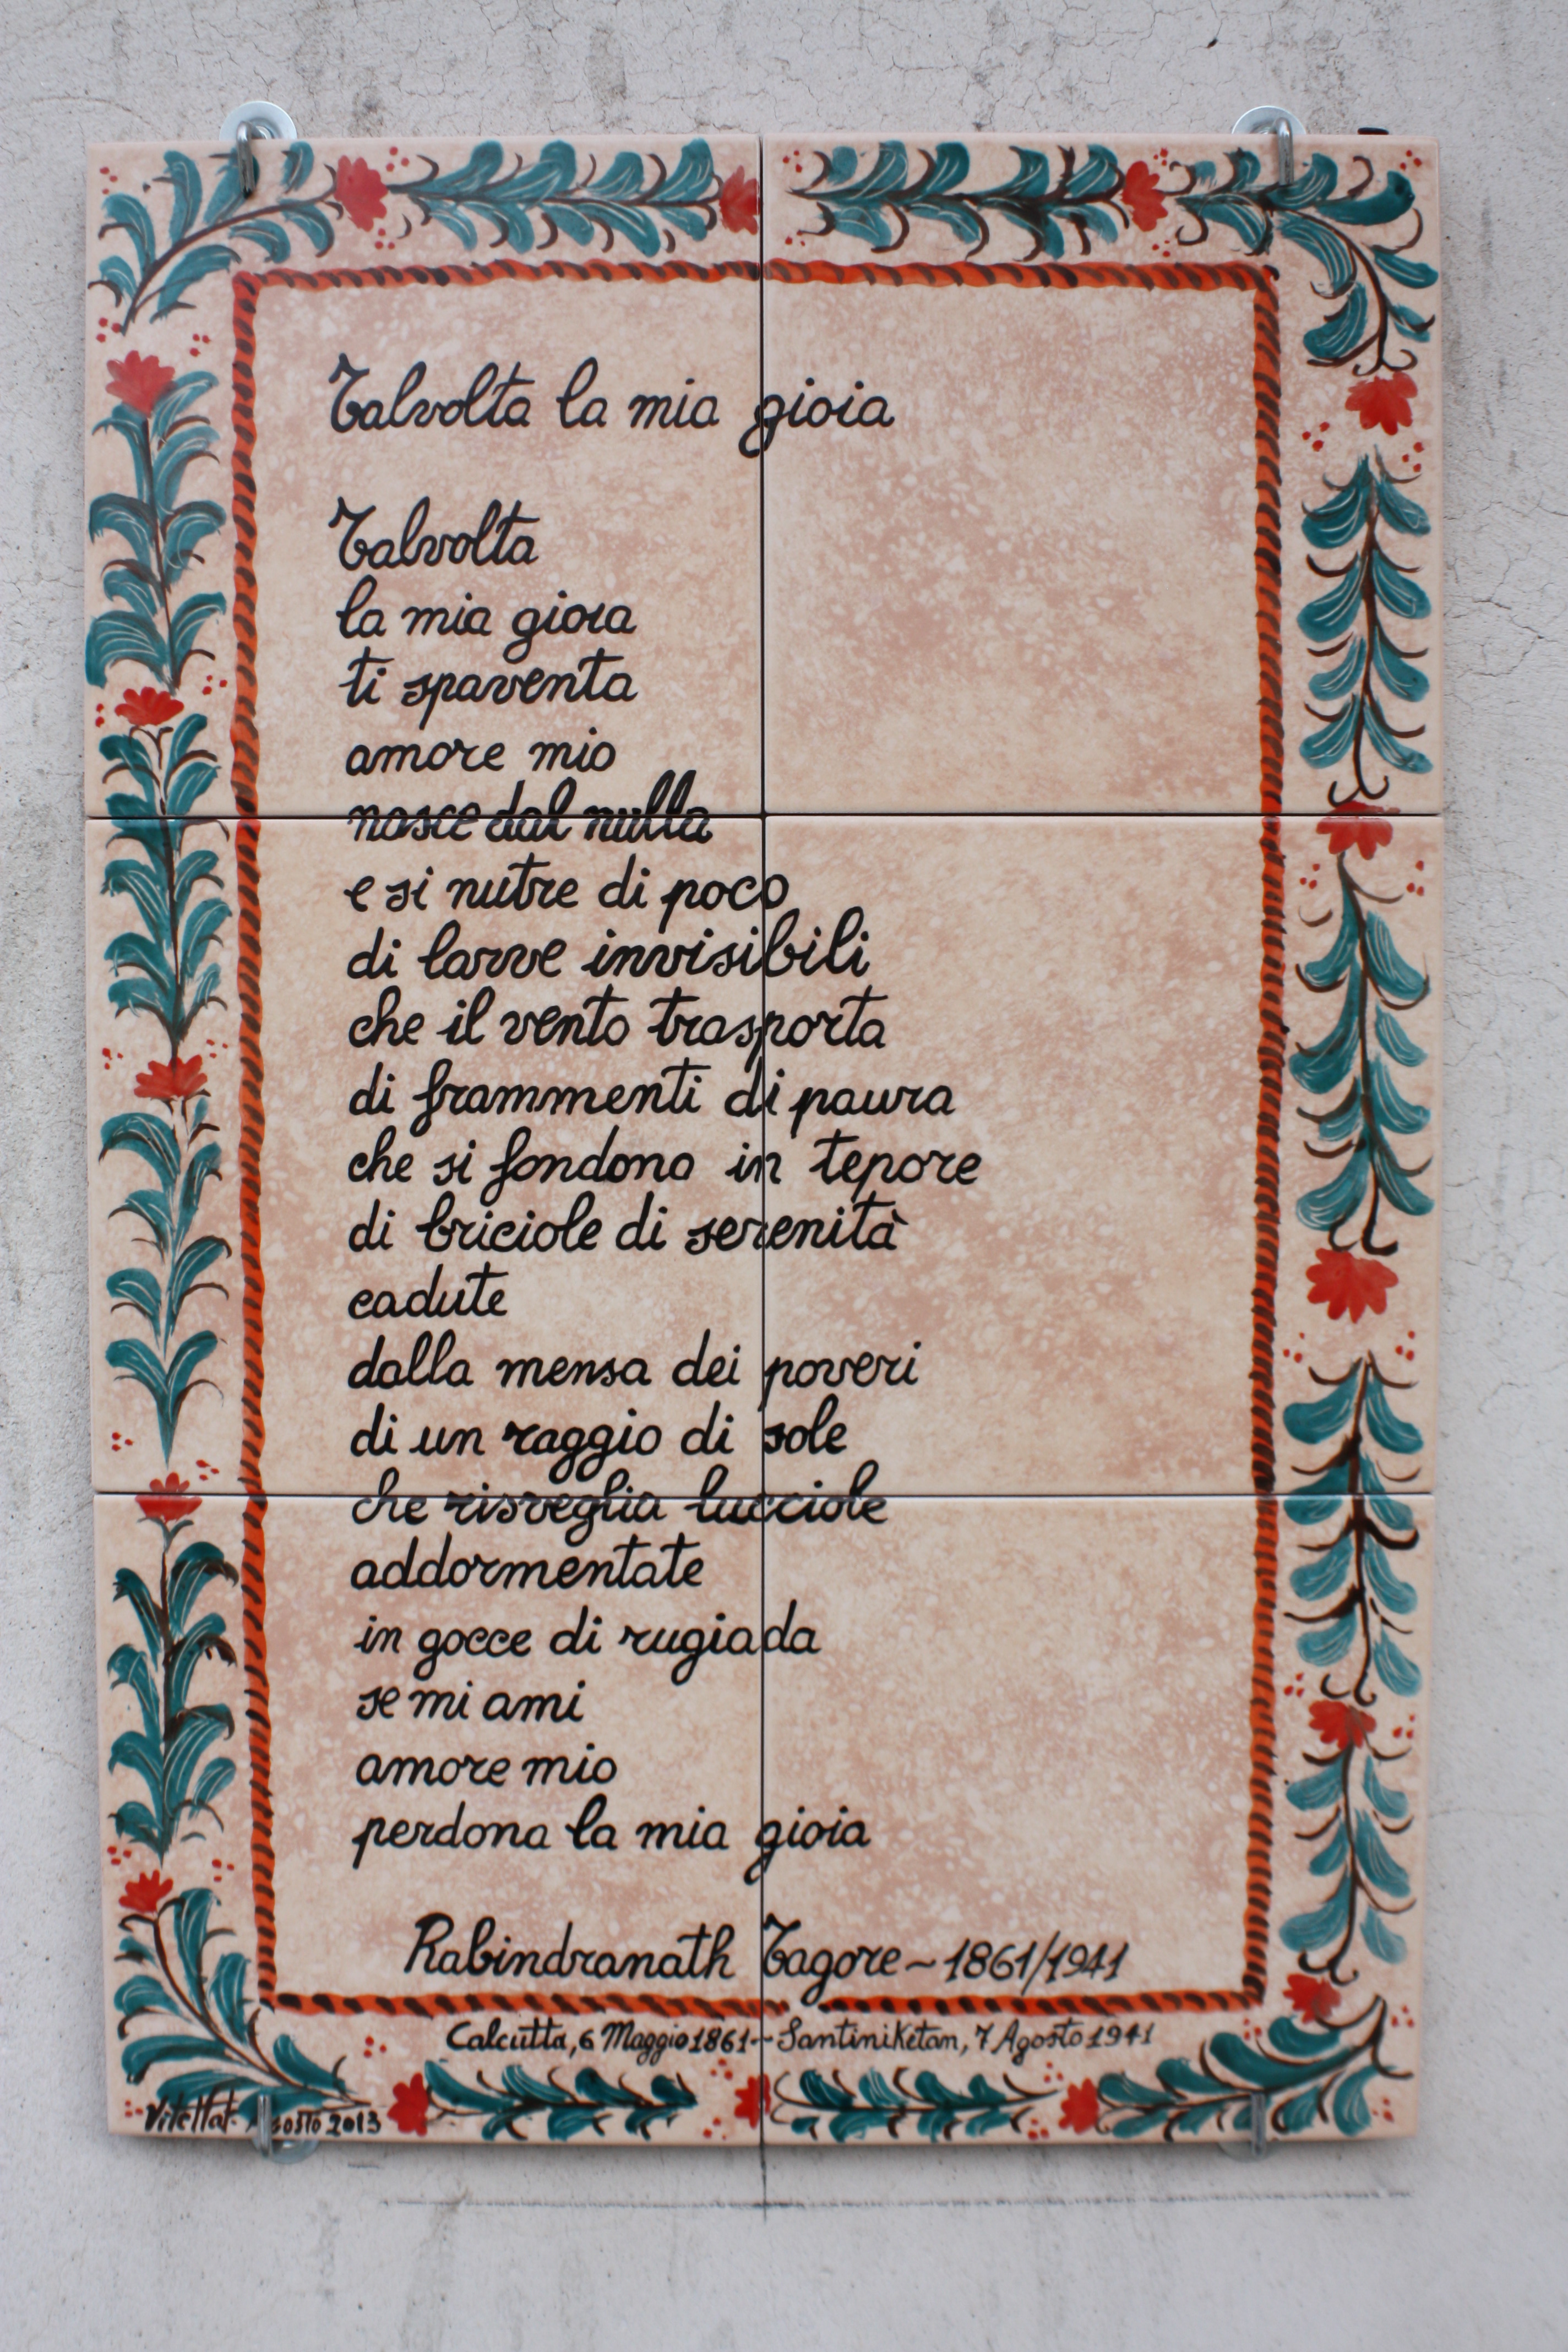 Talvolta la mia gioia
Talvolta
la mia gioia
ti spaventa
amore mio
nasce dal nulla
e si nutre di poco
di larve invisibili
che il vento trasporta
di frammenti di paura
che si fondono in tepore
di briciole di serenità
cadute
dalla mensa dei poveri
di un raggio di sole
che risveglia lucciole
addormentate
in gocce di rugiada
se mi ami
amore mio
perdona la mia gioia
Rabindranath Tagore ~ 1861/1941
Calcutta, 6 Maggio 1861 - Santiniketan, 7 Agosto 1941
Agosto 2013